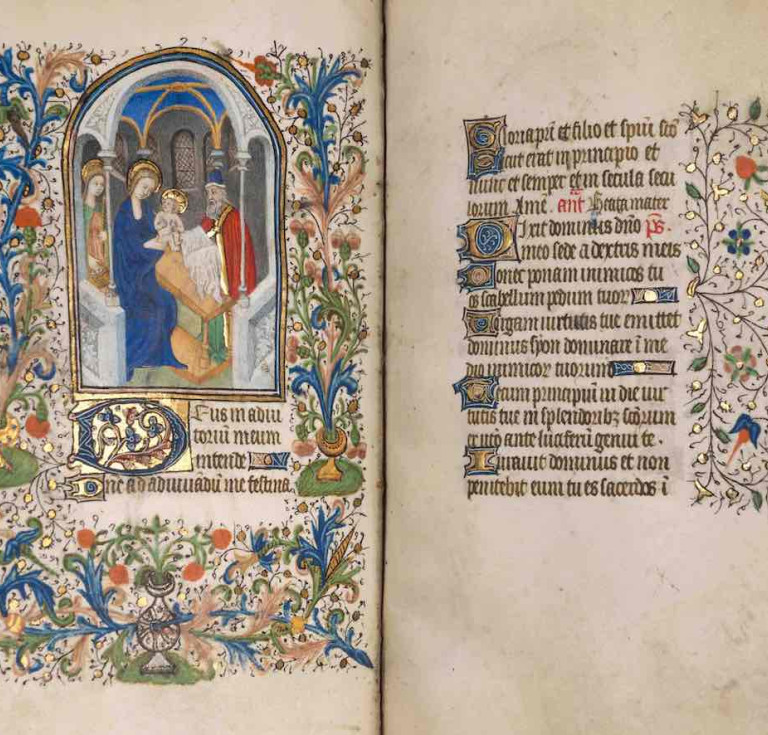 Deus in adiu
toriū meum
intende
Dñe ad adiuuādū me festina
Gloria pr̄i et filio et spūi scō
Sicut erat in principio et
nunc et semper et in secula secu
lorum Amē. añt Beata mater
Dixit dominus dño ps̄.
meo sede a dextris meis
Donec ponam inimicos tu
os scabellum pedum tuor
Uirgam uirtutis tue emittet
dominus syon dominare ī me
dio inimicor tuorum
Tecum principiū in die uir
tutis tue in splendoribꝫ scōrum
ex utō ante luciferū genui te.
Iurauit dominus et non
penitebit eum tu es sacerdos ī